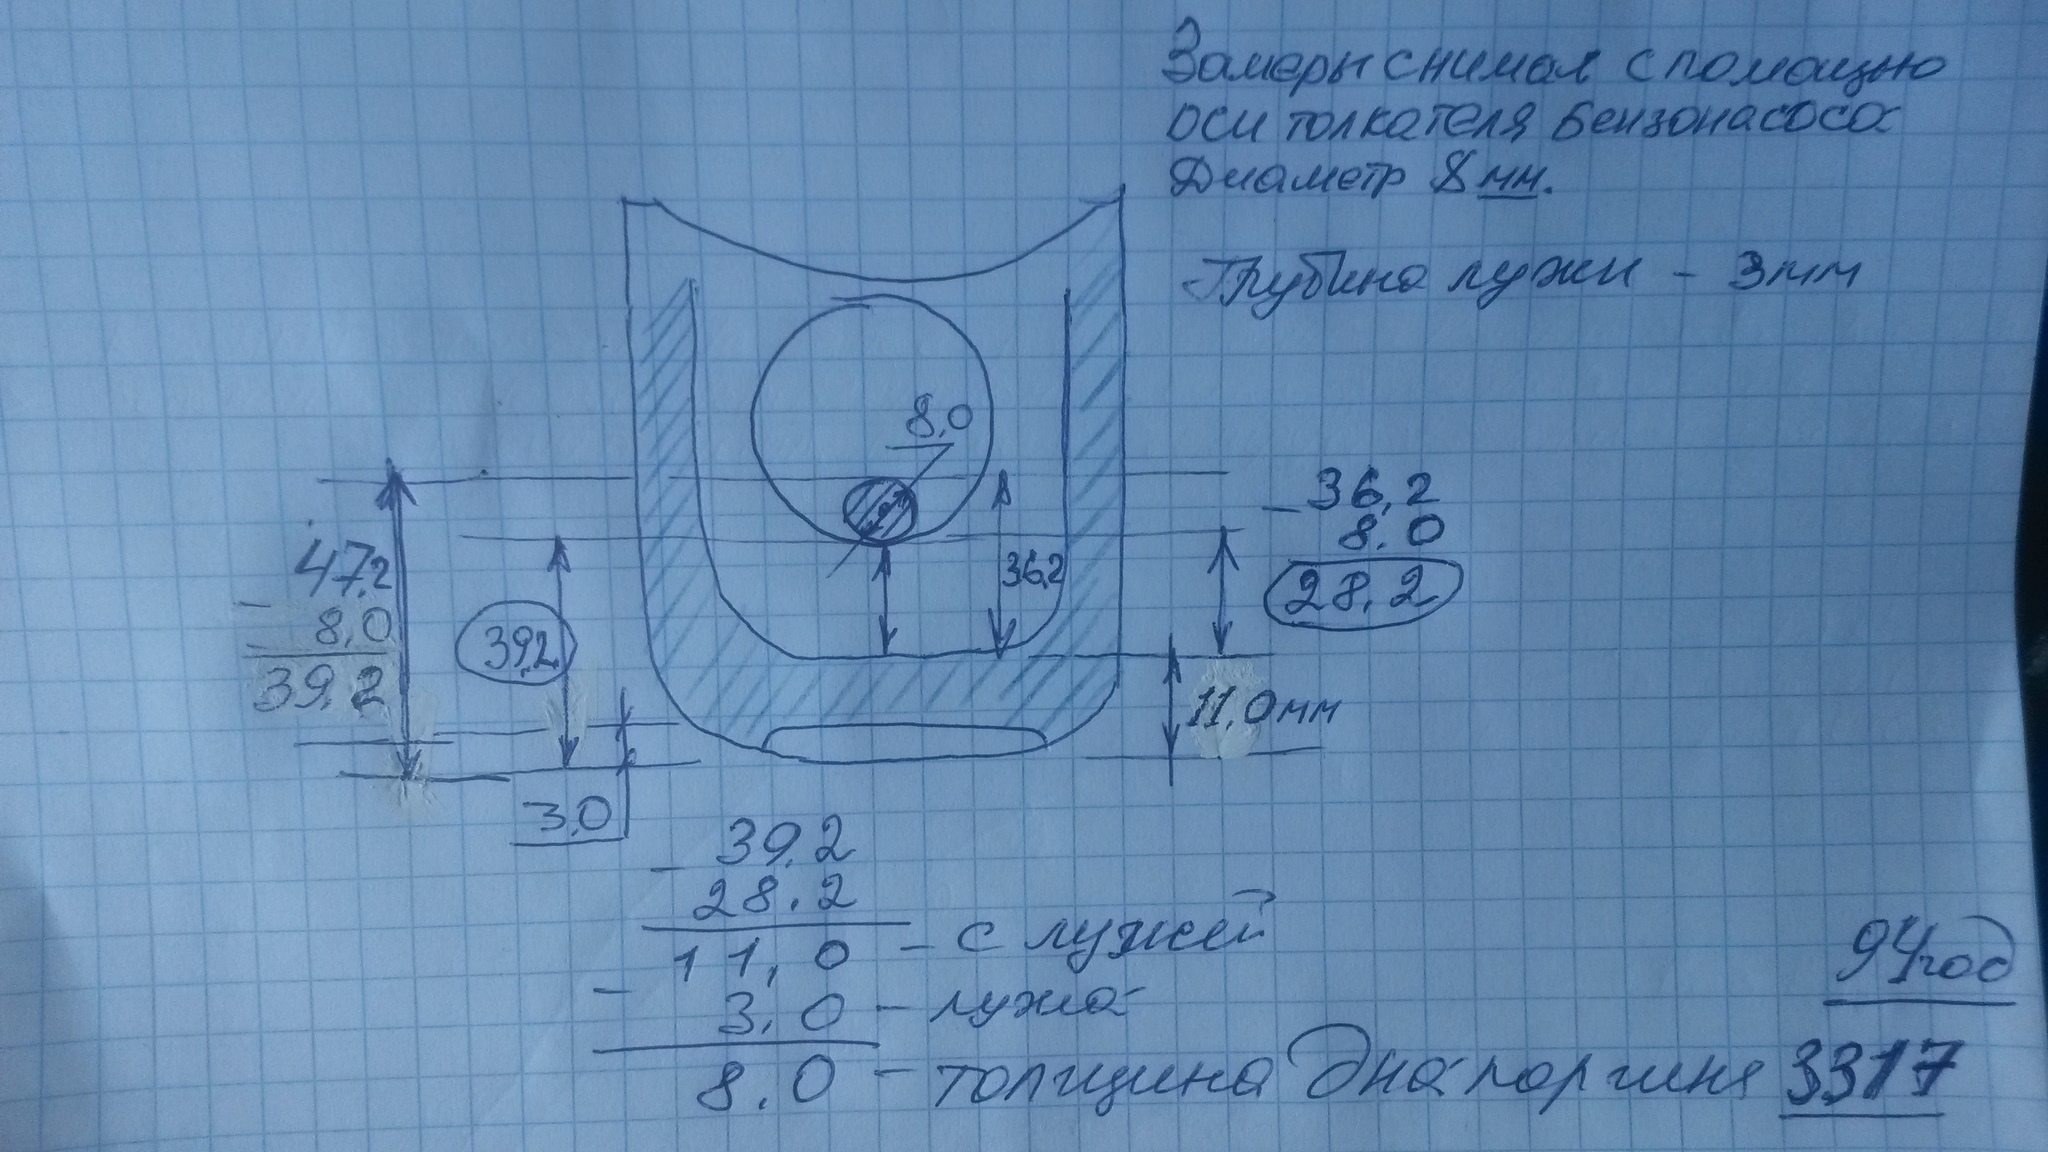 Замеры снимал с помощью
оси толкателя бензонасоса
Диаметр 8 мм.
Глубина лужи - 3мм
8,0
47,2
- 8,0
39,2
39,2
36,2
- 36,2
8,0
28,2
11,0мм
3,0
- 39,2
28,2
11,0 - с лужей
- 3,0 - лужа
8,0 - толщина дна поршня 3317
94год